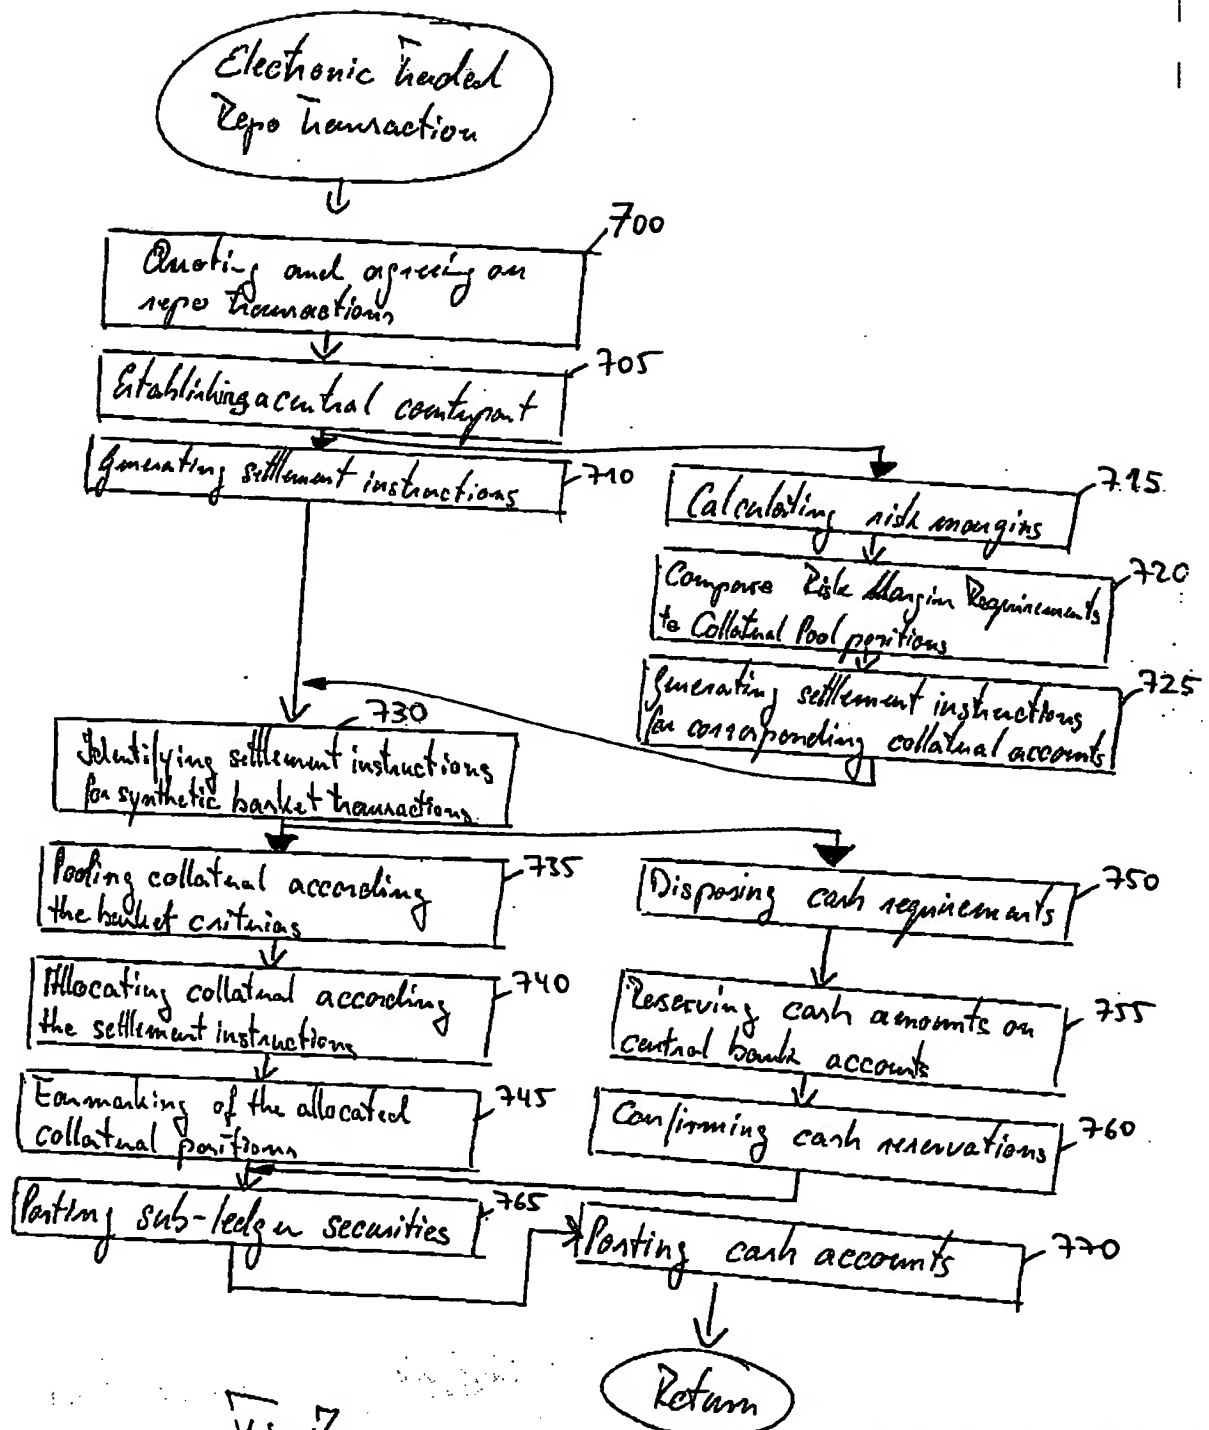 Electronic Traded
Repo Transaction
700
Quoting and agreeing on
repo transactions
705
Establishing a central counterpart
Generating settlement instructions
710
715
Calculating risk margins
720
Compare Risk Margin Requirements
to Collateral Pool positions
725
Generating settlement instructions
for corresponding collateral accounts
730
Identifying settlement instructions
for synthetic basket transactions
735
Pooling collateral according
the basket criterias
740
Allocating collateral according
the settlement instructions
745
Earmarking of the allocated
collateral positions
750
Disposing cash requirements
755
Reserving cash amounts on
central bank accounts
760
Confirming cash reservations
765
Posting sub-ledger securities
770
Posting cash accounts
Return